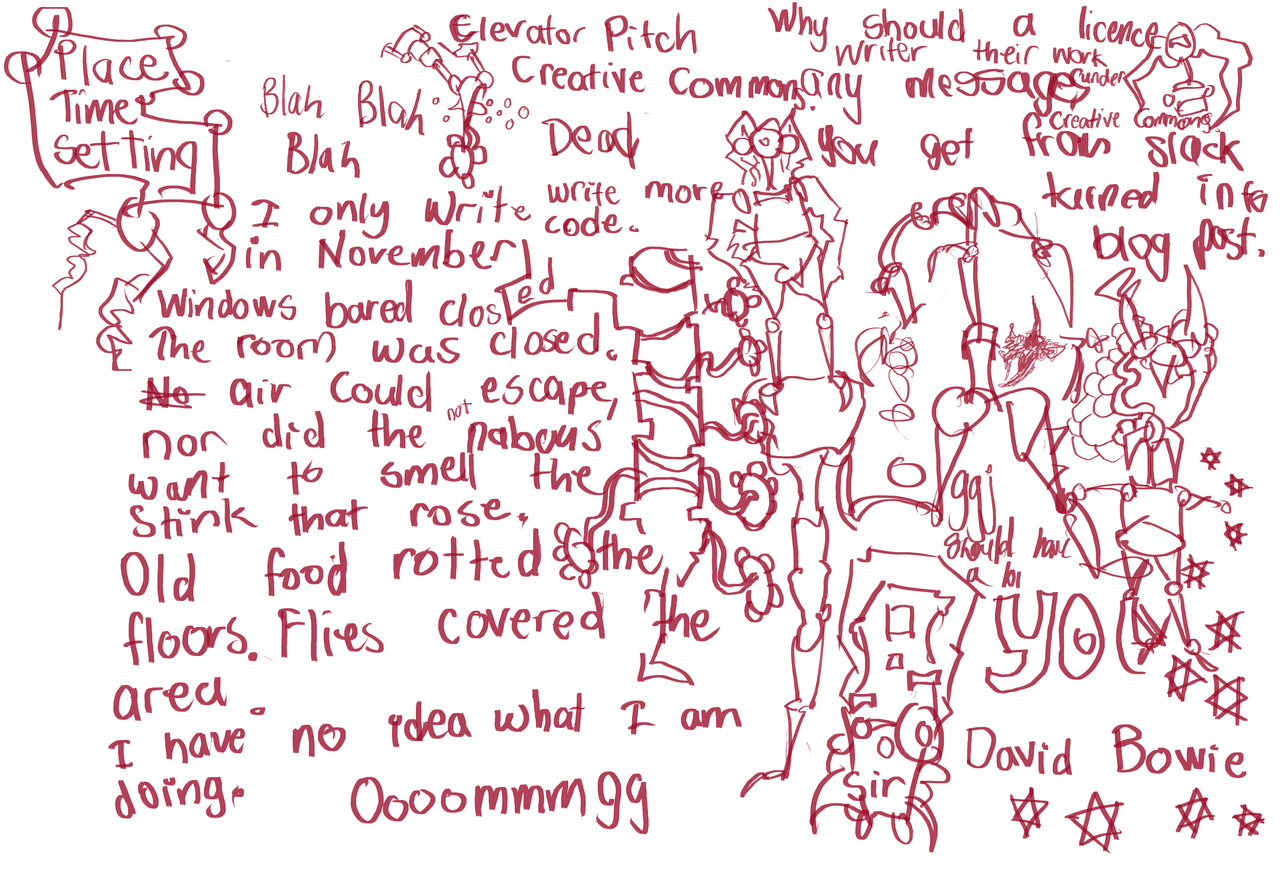 Place
Time
Setting
Blah Blah
Blah
Elevator Pitch
Creative Commons.
Dead
write more
code.
Why should a licence
writer their work
under
Creative Commons.
any messages
you get from slack
turned into
blog post.
I only write
in November
Windows bared closed
The room was closed.
No air could escape,
nor did the not nabous
want to smell the
stink that rose.
Old food rotted the
floors. Flies covered the
area.
I have no idea what I am
doing.
Oooommmgg
ggj
should have
a
yo
Sir
David Bowie